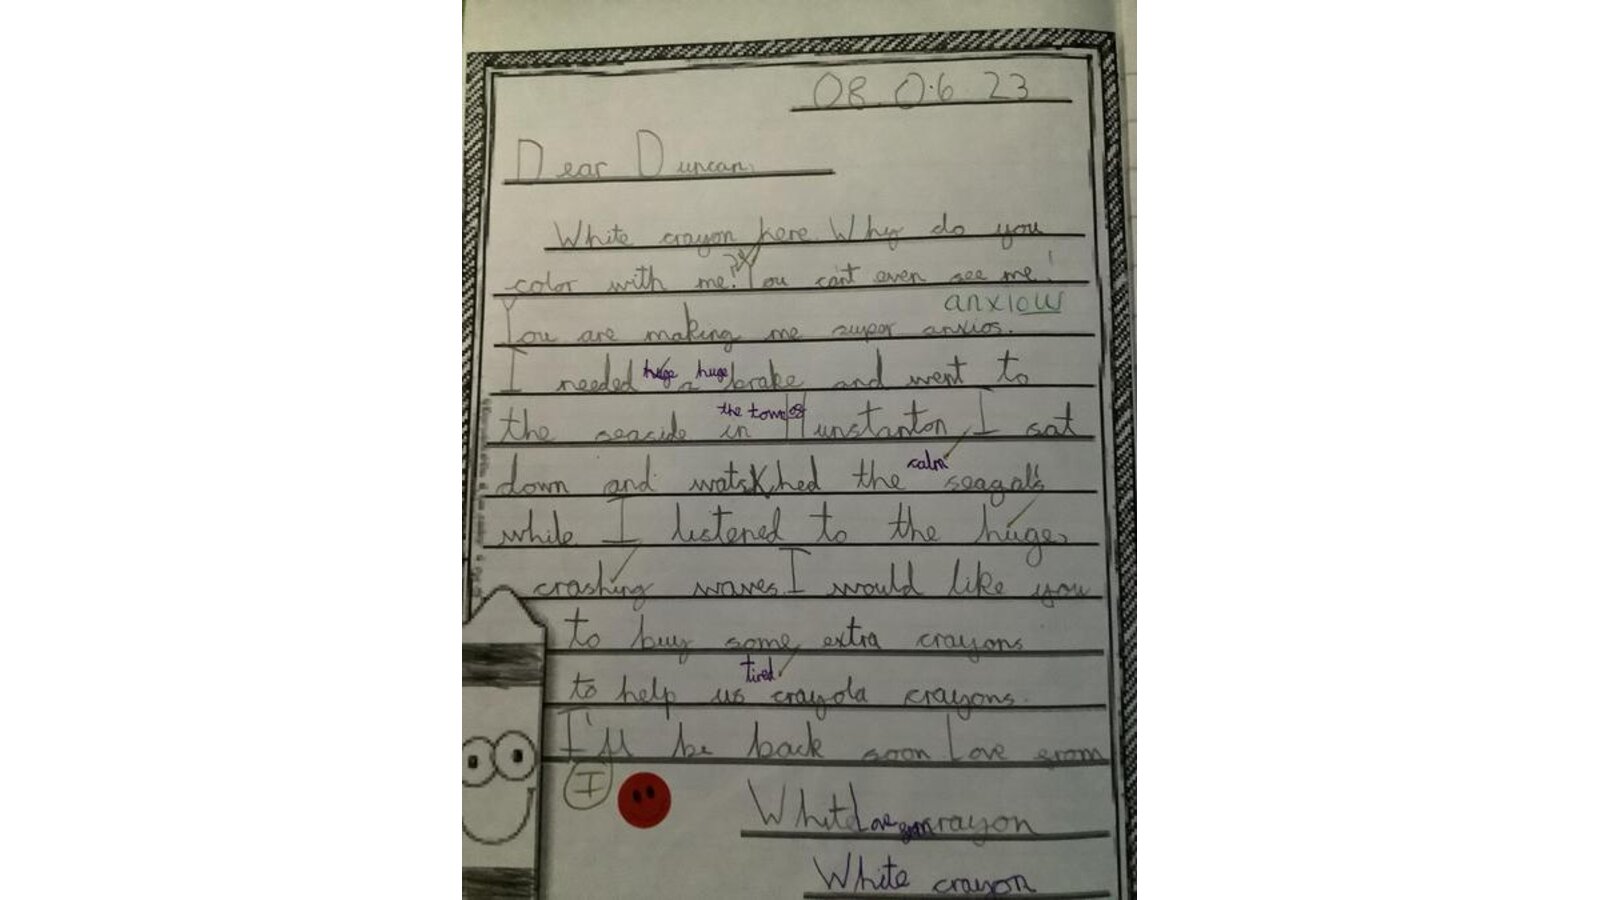 08.06.23
Dear Duncan,
White crayon here. Why do you
color with me? You can't even see me!
anxious
You are making me super anxios.
I needed huge a huge brake and went to
the town of
the seaside in Hunstanton. I sat
calm
down and watskhed the seagals
while I listened to the huge,
crashing waves. I would like you
to buy some extra crayons
tired
to help us crayola crayons.
I'll be back soon Love from
I
White Love from crayon
White crayon